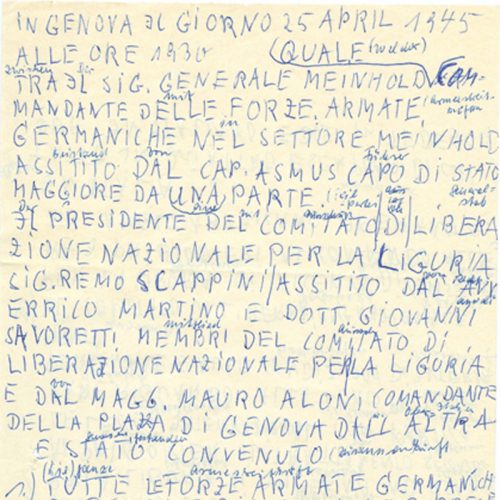 IN GENOVA IL GIORNO 25 APRIL 1945
ALLE ORE 1930
(QUALE (welcher)
zwischen der
TRA IL SIG. GENERALE MEINHOLD COM-
mit
MANDANTE DELLE FORZE ARMATE,
in
GERMANICHE NEL SETTORE MEINHOLD
Beistand von Führer
ASSITITO DAL CAP. ASMUS CAPO DI STATO
MAGGIORE DA UNA PARTE,
Der
IL PRESIDENTE DEL COMITATO DI LIBERA
ZIONE NAZIONALE PER LA LIGURIA
SIG. REMO SCAPPINI/ASSITITO DAL AVV.
ERRICO MARTINO E DOTT. GIOVANNI
Mitglied
SAVORETTI, MEMBRI DEL COMITATO DI
LIBERAZIONE NAZIONALE PER LA LIGURIA
von
E DAL MAGG. MAURO ALONI COMANDANTE
DELLA PLAZZA DI GENOVA DALL ALTRA
E STATO CONVENUTO
ganze
1.) TUTTE LE FORZE ARMATE GERMANICH